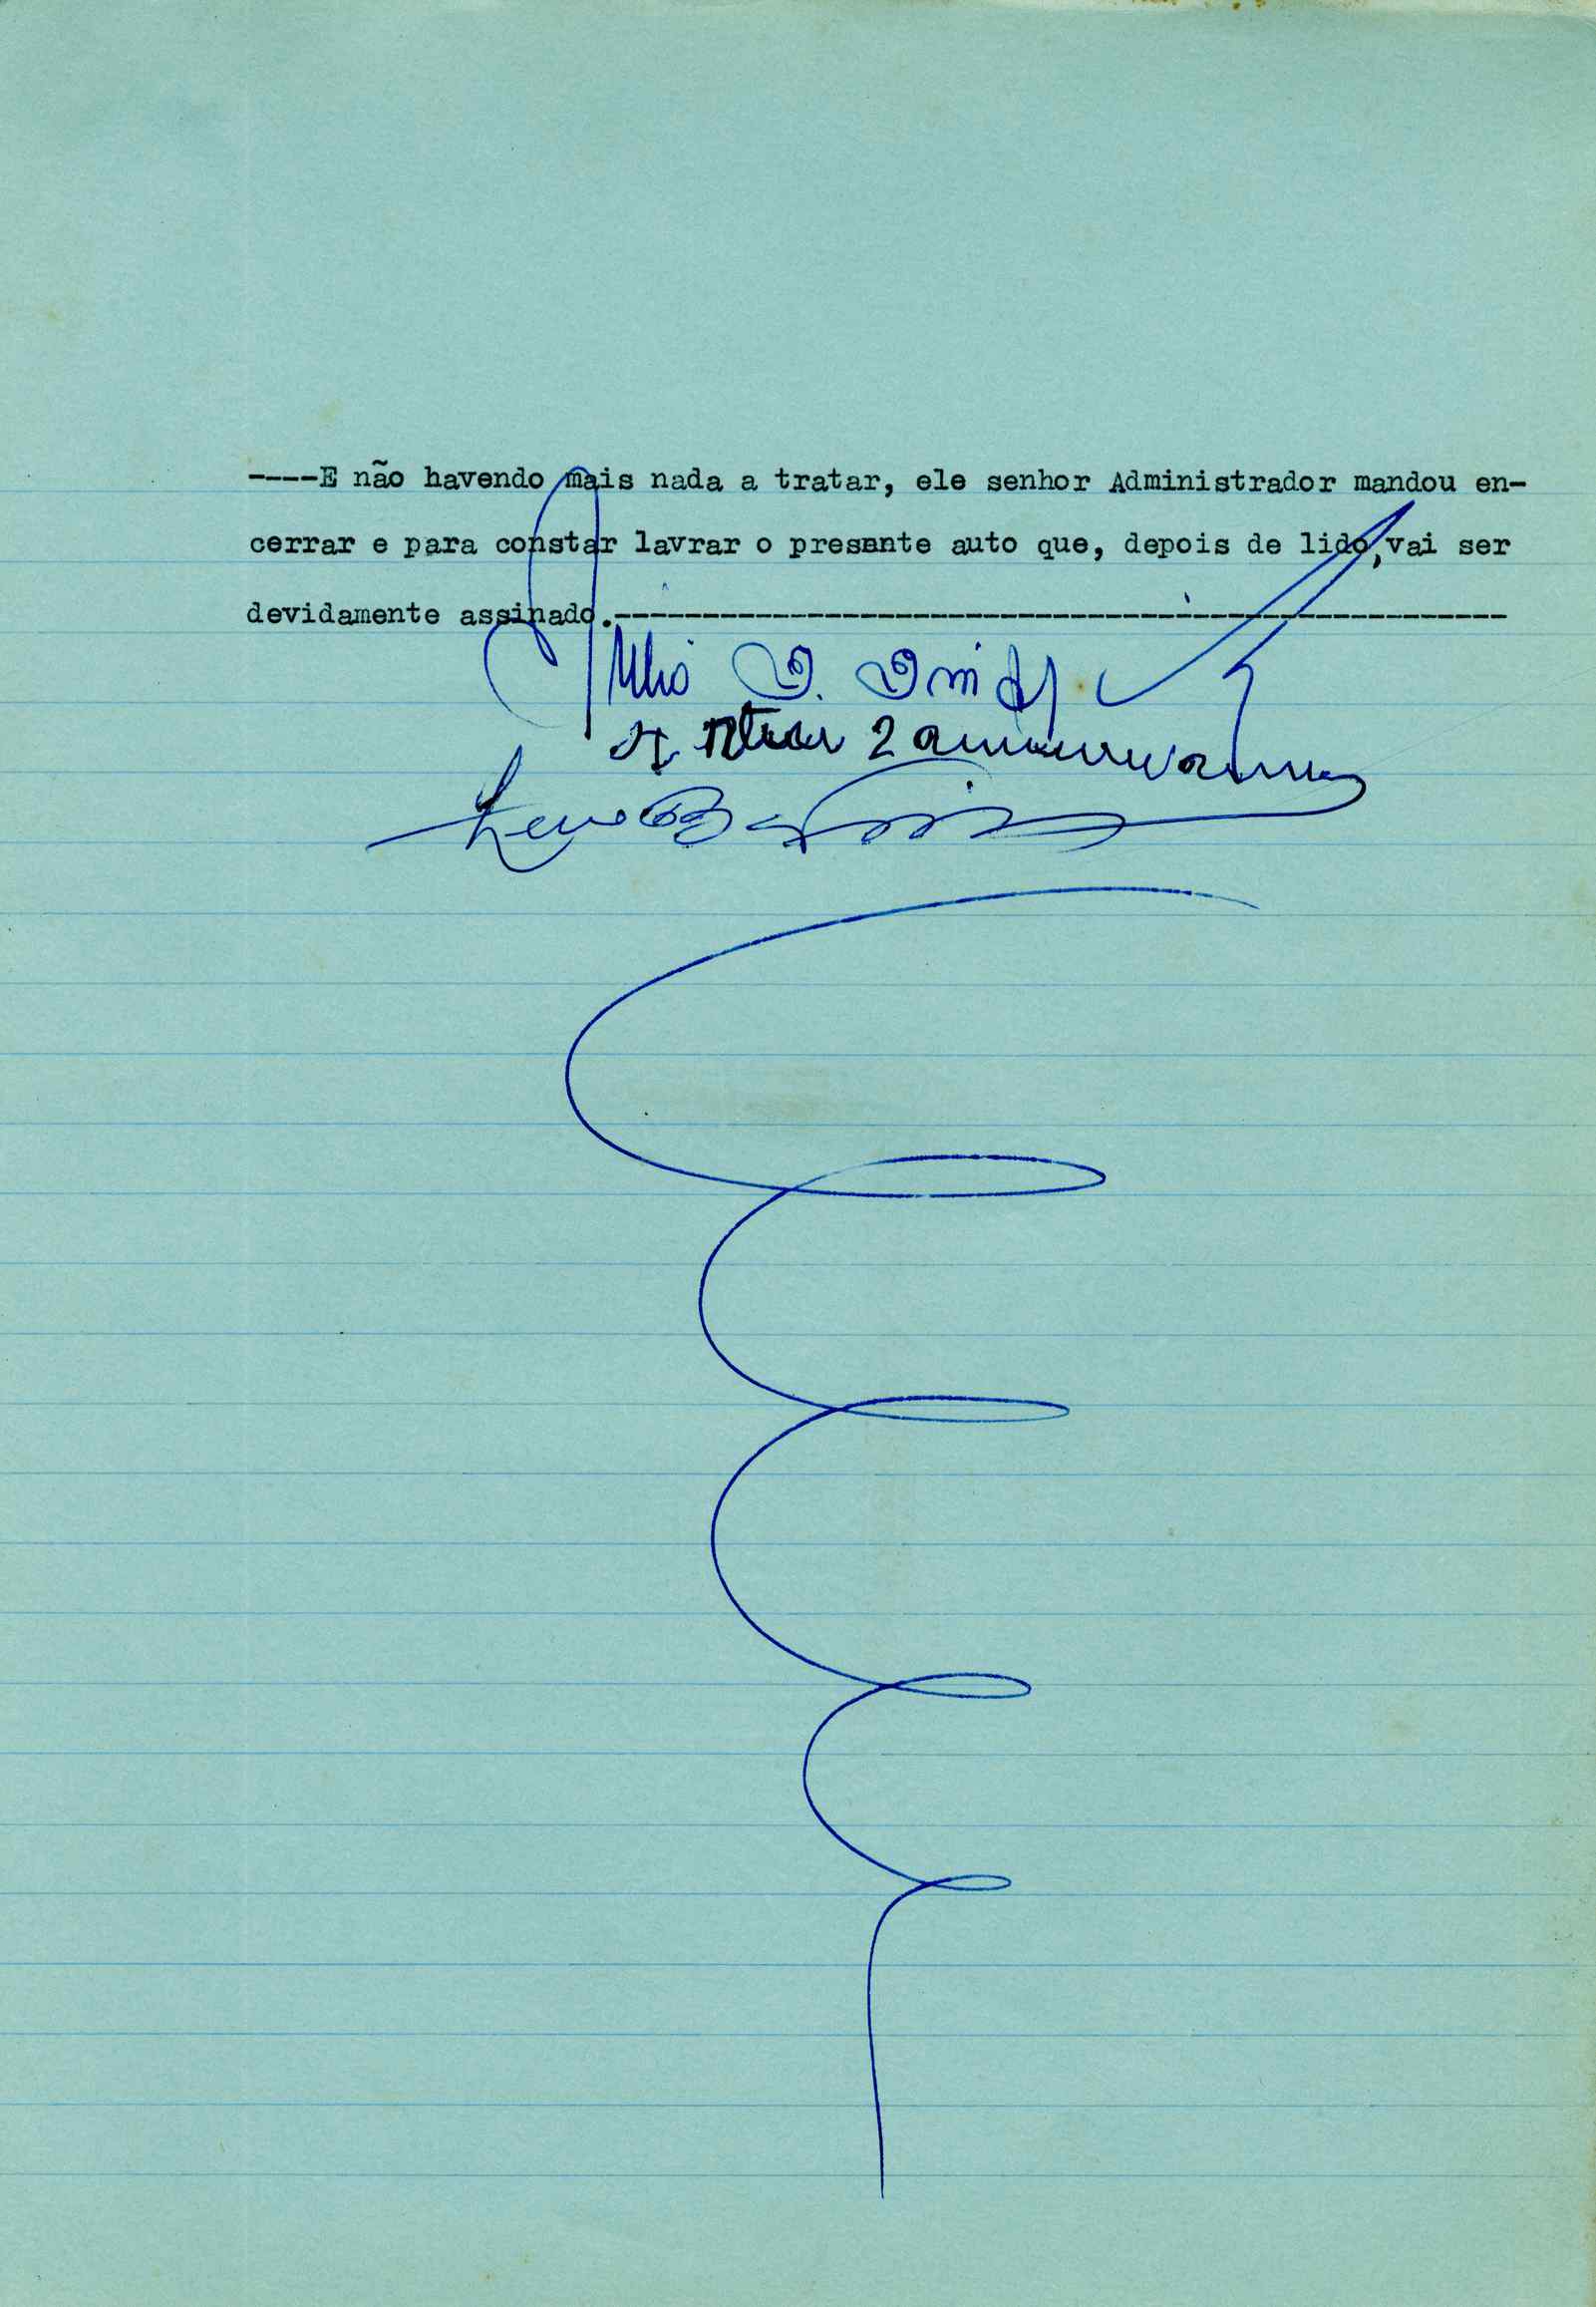 ----E não havendo mais nada a tratar, ele senhor Administrador mandou en-
cerrar e para constar lavrar o presente auto que, depois de lido,vai ser
devidamente assinado.----------------------------------------------------